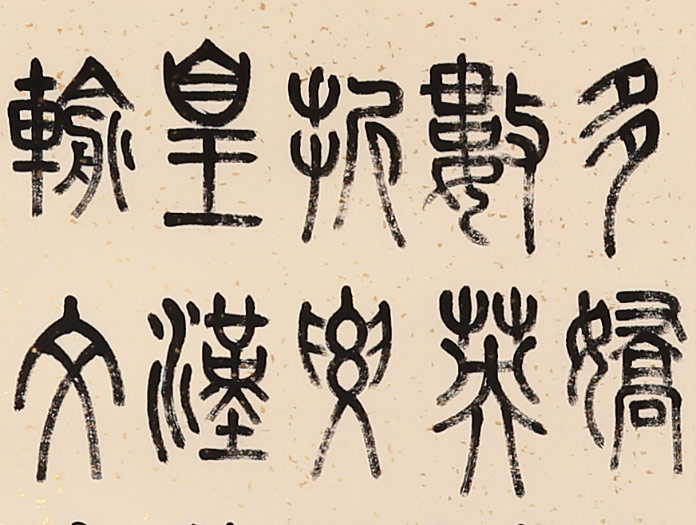 多嬌
數英
折要
皇漢
輸文